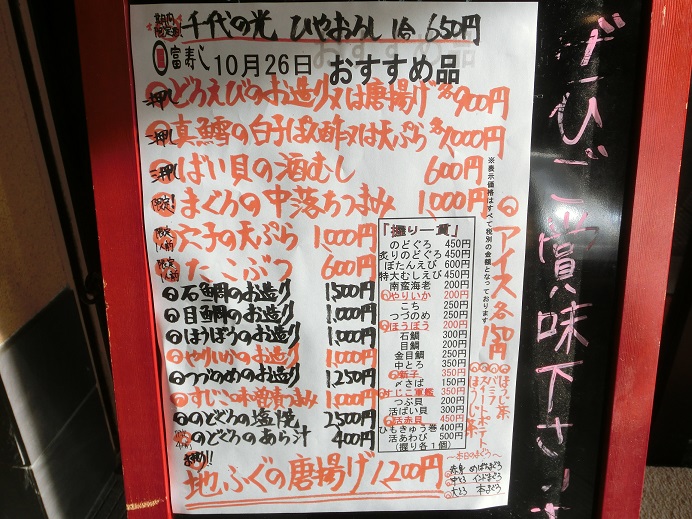 期間限定酒 千代の光 ひやおろし 1合 650円
富寿し 10月26日 おすすめ品
一押し どろえびのお造り又は唐揚げ 各900円
二押し 真鱈の白子ぽん酢又は天ぷら 各1,000円
三押し ばい貝の酒むし 600円
限定! まぐろの中落ちつまみ 1,000円
限定 穴子の天ぷら 1,000円
限定 たこぶつ 600円
石鯛のお造り 1500円
目鯛のお造り 1,000円
ほうぼうのお造り 1,000円
やりいかのお造り 1,000円
つづのめのお造り 1250円
すじこ味噌漬つまみ 1,000円
のどぐろの塩焼 2500円
のどぐろのあら汁 400円
地ふぐの唐揚げ 1,200円
「握り一貫」
のどぐろ 450円
炙りのどぐろ 450円
ぼたんえび 600円
特大むしえび 450円
南蛮海老 200円
やりいか 200円
こち 250円
つづのめ 250円
ほうぼう 200円
石鯛 300円
目鯛 200円
金目鯛 250円
中とろ 350円
新子 350円
〆さば 150円
すじこ軍艦 350円
つぶ貝 200円
活ばい貝 300円
活赤貝 450円
ひもきゅう巻 400円
活あわび 500円
(握り各1個)
※表示価格はすべて税別の金額となっております
アイス各150円
ほうじ茶
バニラ
スイートポテト
ほうじ茶
～本日のまぐろ～
赤身 めばちまぐろ
中とろ インドまぐろ
大とろ 本まぐろ
ぜひご賞味下さい